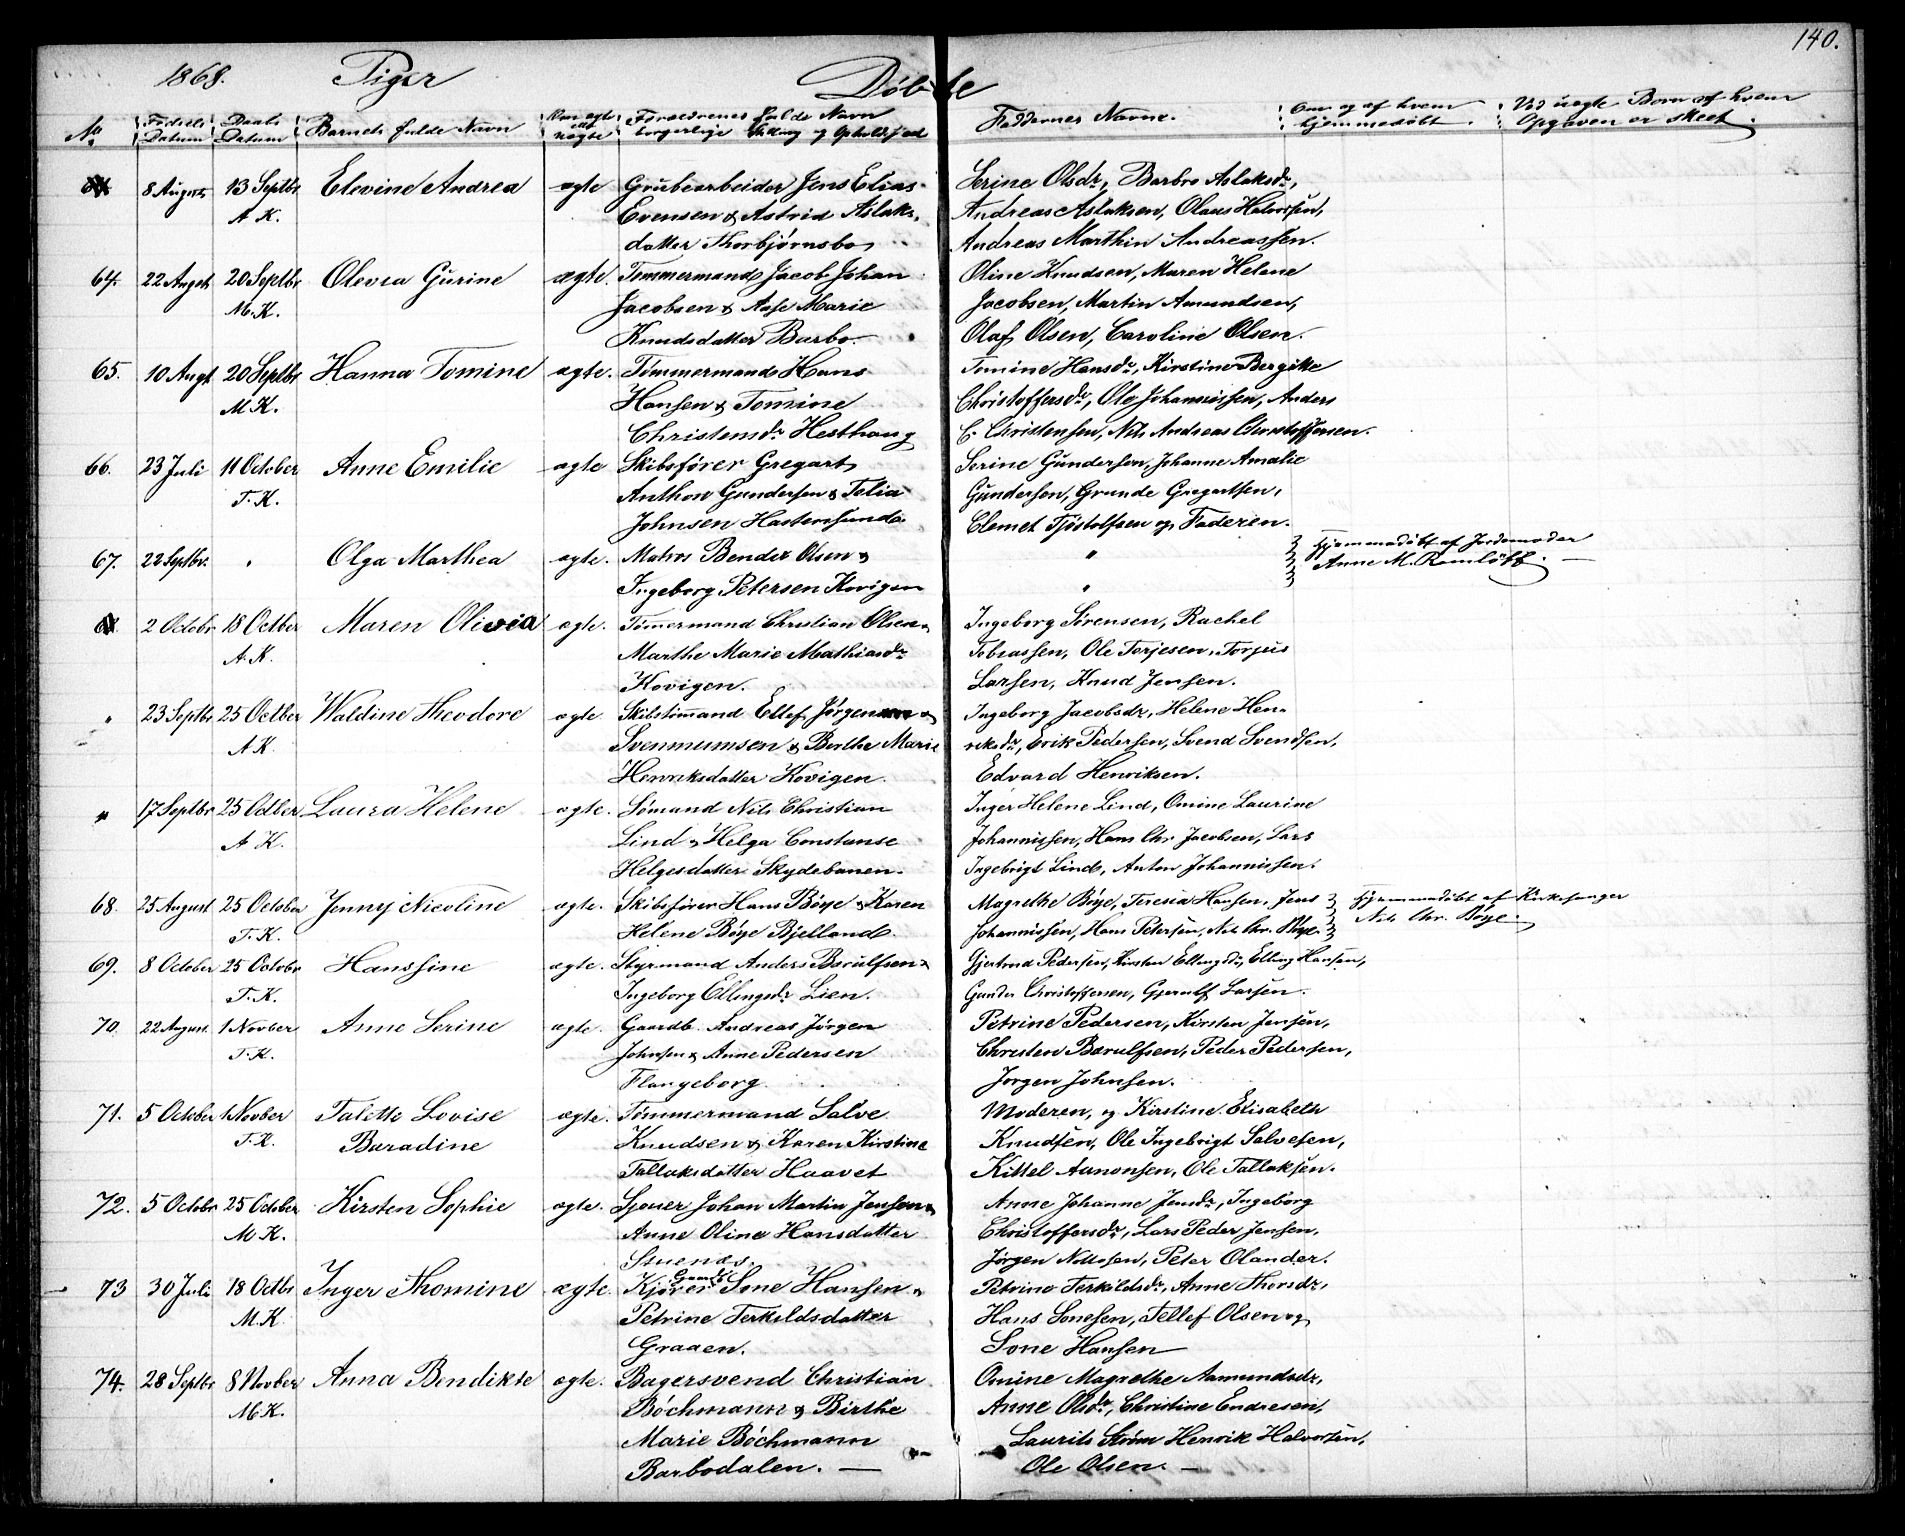 140.
1868. Piger Døbte
No Fødsels Datum Daabs Datum Barnets fulde Navn Om ægte eller uægte Forældrenes fulde Navn borgerlige Stilling og Opholdssted Faddernes Navne. Om og af hvem hjemmedøbt. Ved uægte Børn af hvem Opgaven er skeet.
8 August 13 Septbr Elevine Andrea ægte Grubearbeider Jens Elias Serine Olsdr, Barbro Aslaksdr,
A. K. Evensen & Astrid Aslaks- Andreas Aslaksen, Olaus Halvorsen,
datter Thorbjørnsbo Andreas Marthin Andreassen.
64. 22 Augst 20 Septbr Olevia Gurine ægte. Tømmermand Jacob Johan Oline Knudsen, Maren Helene
M. K. Jacobsen & Aase Marie Jacobsen, Martin Amundsen,
Knudsdatter Barbo. Olaf Olsen, Caroline Olsen.
65. 10 Augt 20 Septbr Hanna Tomine ægte. Tømmermand Hans Tomine Hansdr, Kirstine Bergitte
M. K. Hansen & Tomine Christoffersdr, Ole Johannissen, Anders
Christensdr Hesthaug C. Christensen, Nils Andreas Christoffersen.
66. 23 Juli 11 October Anne Emilie ægte Skibsfører Gregart Serine Gundersen, Johanne Amalie
T. K. Anthon Gundersen & Talia Gundersen, Grunde Gregartsen,
Johnsen Hastensund. Clemet Tjøstolfsen og Faderen.
67. 22 Septbr. " Olga Marthea ægte. Matros Bendix Olsen & " Hjemmedøbt af Jordemoder
Ingeborg Petersen Kovigen " Anne M. Romløff.
2 Octobr 18 Octber Maren Olivia ægte. Tømmermand Christian Olsen & Ingeborg Sørensen, Rachel
A. K. Marthe Marie Mathiasdr Tobiassen, Ole Terjesen, Torjus
Kovigen. Larsen, Knud Jensen.
" 23 Septbr 25 Octber Waldine Theodore ægte Skibstømmand Ellef Jørgen Ingeborg Jacobsdr, Helene Hen-
A. K. Svenmumsen & Berthe Marie riksdr, Erik Pedersen, Svend Svendsen,
Henriksdatter Kovigen. Edvard Henriksen.
" 17 Septbr 25 Octber Laura Helene ægte. Sømand Nils Christian Inger Helene Lind, Omine Laurine
A. K. Lind & Helga Constanse Johannissen, Hans Chr Jacobsen, Lars
Helgesdatter Skydebanen. Ingebrigt Lind, Anton Johannissen.
68. 25 August 25 October Jenny Nicoline ægte. Skibsfører Hans Bøye & Karen Magrethe Bøye, Teresia Hansen, Jens Hjemmedøbt af Kirkesanger
T. K. Helene Bøye Bjelland. Johannissen, Hans Petersen, Nils Chr. Bøye. Nils Chr. Bøye.
69. 8 October 25 Octobr Hanssine ægte. Styrmand Anders Børulfsen & Gjertrud Pedersen, Kirsten Ellingsdr, Elling Hansen,
T. K. Ingeborg Ellingsdr Lien. Gunder Christoffersen, Gjerulf Larsen.
70. 22 August. 1 Novber Anne Serine ægte. Gaardb. Andreas Jørgen Petrine Pedersen, Kirsten Jensen,
T. K. Johnsen & Anne Pedersen Christen Børulfsen, Peder Pedersen,
Flangeborg. Jørgen Johnsen.
71. 5 October 1 Novber Talette Lovise ægte. Tømmermand Salve Moderen, og Kirstine Elisabeth
T. K. Baradine Knudsen & Karen Kirstine Knudsen, Ole Ingebrigt Salvesen,
Tallaksdatter Haavet Kittel Aanonsen, Ole Tallaksen.
72. 5 Octobr 25 October Kirsten Sophie ægte. Sjouer Johan Martin Jensen & Anne Johanne Jensdr, Ingeborg
M. K. Anne Oline Hansdatter Christoffersdr, Lars Peder Jensen,
Snuenæs. Jørgen Nilssen, Peter Olander.
73 30 Juli 18 Octbr Inger Thomine ægte. Kjører Sone Hansen & Petrine Terkildsdr, Anne Thorsdr,
M. K. Petrine Terkildsdatter Hans Sonesen, Tellef Olsen og
Graaen. Sone Hansen
74. 28 Septbr 8 Novber Anna Bendikte ægte. Bagersvend Christian Omine Magrethe Aamundsdr,
M. K. Bøchmann & Birthe Anne Olsdr, Christine Endresen,
Marie Bøchmann Laurits Strøm Henrik Halvorsen,
Barbodalen. Ole Olsen.